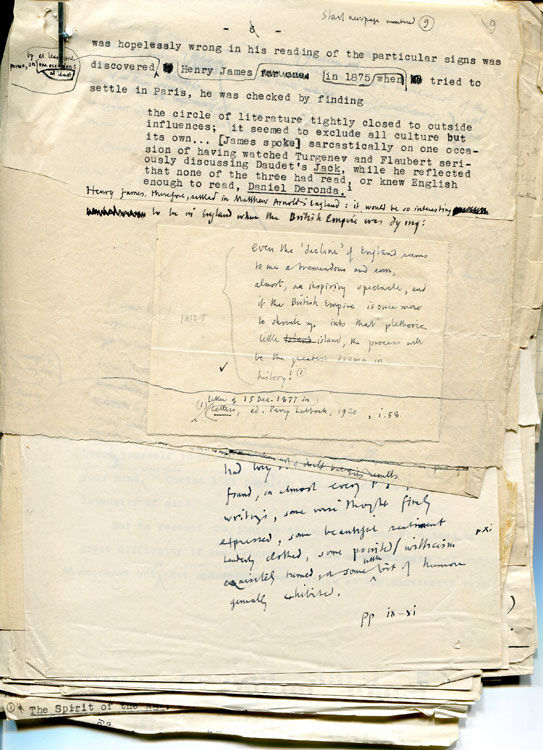 - 8 -
Start new page numbered 9
9
was hopelessly wrong in his reading of the particular signs was
by at least one
at least
discovered Henry James in 1875 when tried to
settle in Paris, he was checked by finding
the circle of literature tightly closed to outside
influences; it seemed to exclude all culture but
its own... [James spoke] sarcastically on one occa-
sion of having watched Turgenev and Flaubert seri-
ously discussing Daudet's Jack, while he reflected
that none of the three had read, or knew English
enough to read, Daniel Deronda.
Henry James, therefore, settled in Matthew Arnold's England: it would be so interesting
to be in England when the British Empire was dying:
Even the 'decline' of England seems
to me a tremendous and even,
almost, an inspiring spectacle, and
if the British Empire is once more
to shrink up into that plethoric
little island, the process will
be the greatest drama in
history! (1)
INSET
(1) letter of 15 Dec. 1877 in
Letters, ed. Percy Lubbock, 1920, i.58
results
found, in almost every
writings, some thought finely
expressed, some beautiful sentiment
tenderly clothed, some pointed witticism
p xi
exquisitely turned, or some little bit of humour
generally exhibited.
pp ix-xi
(1) The Spirit of the